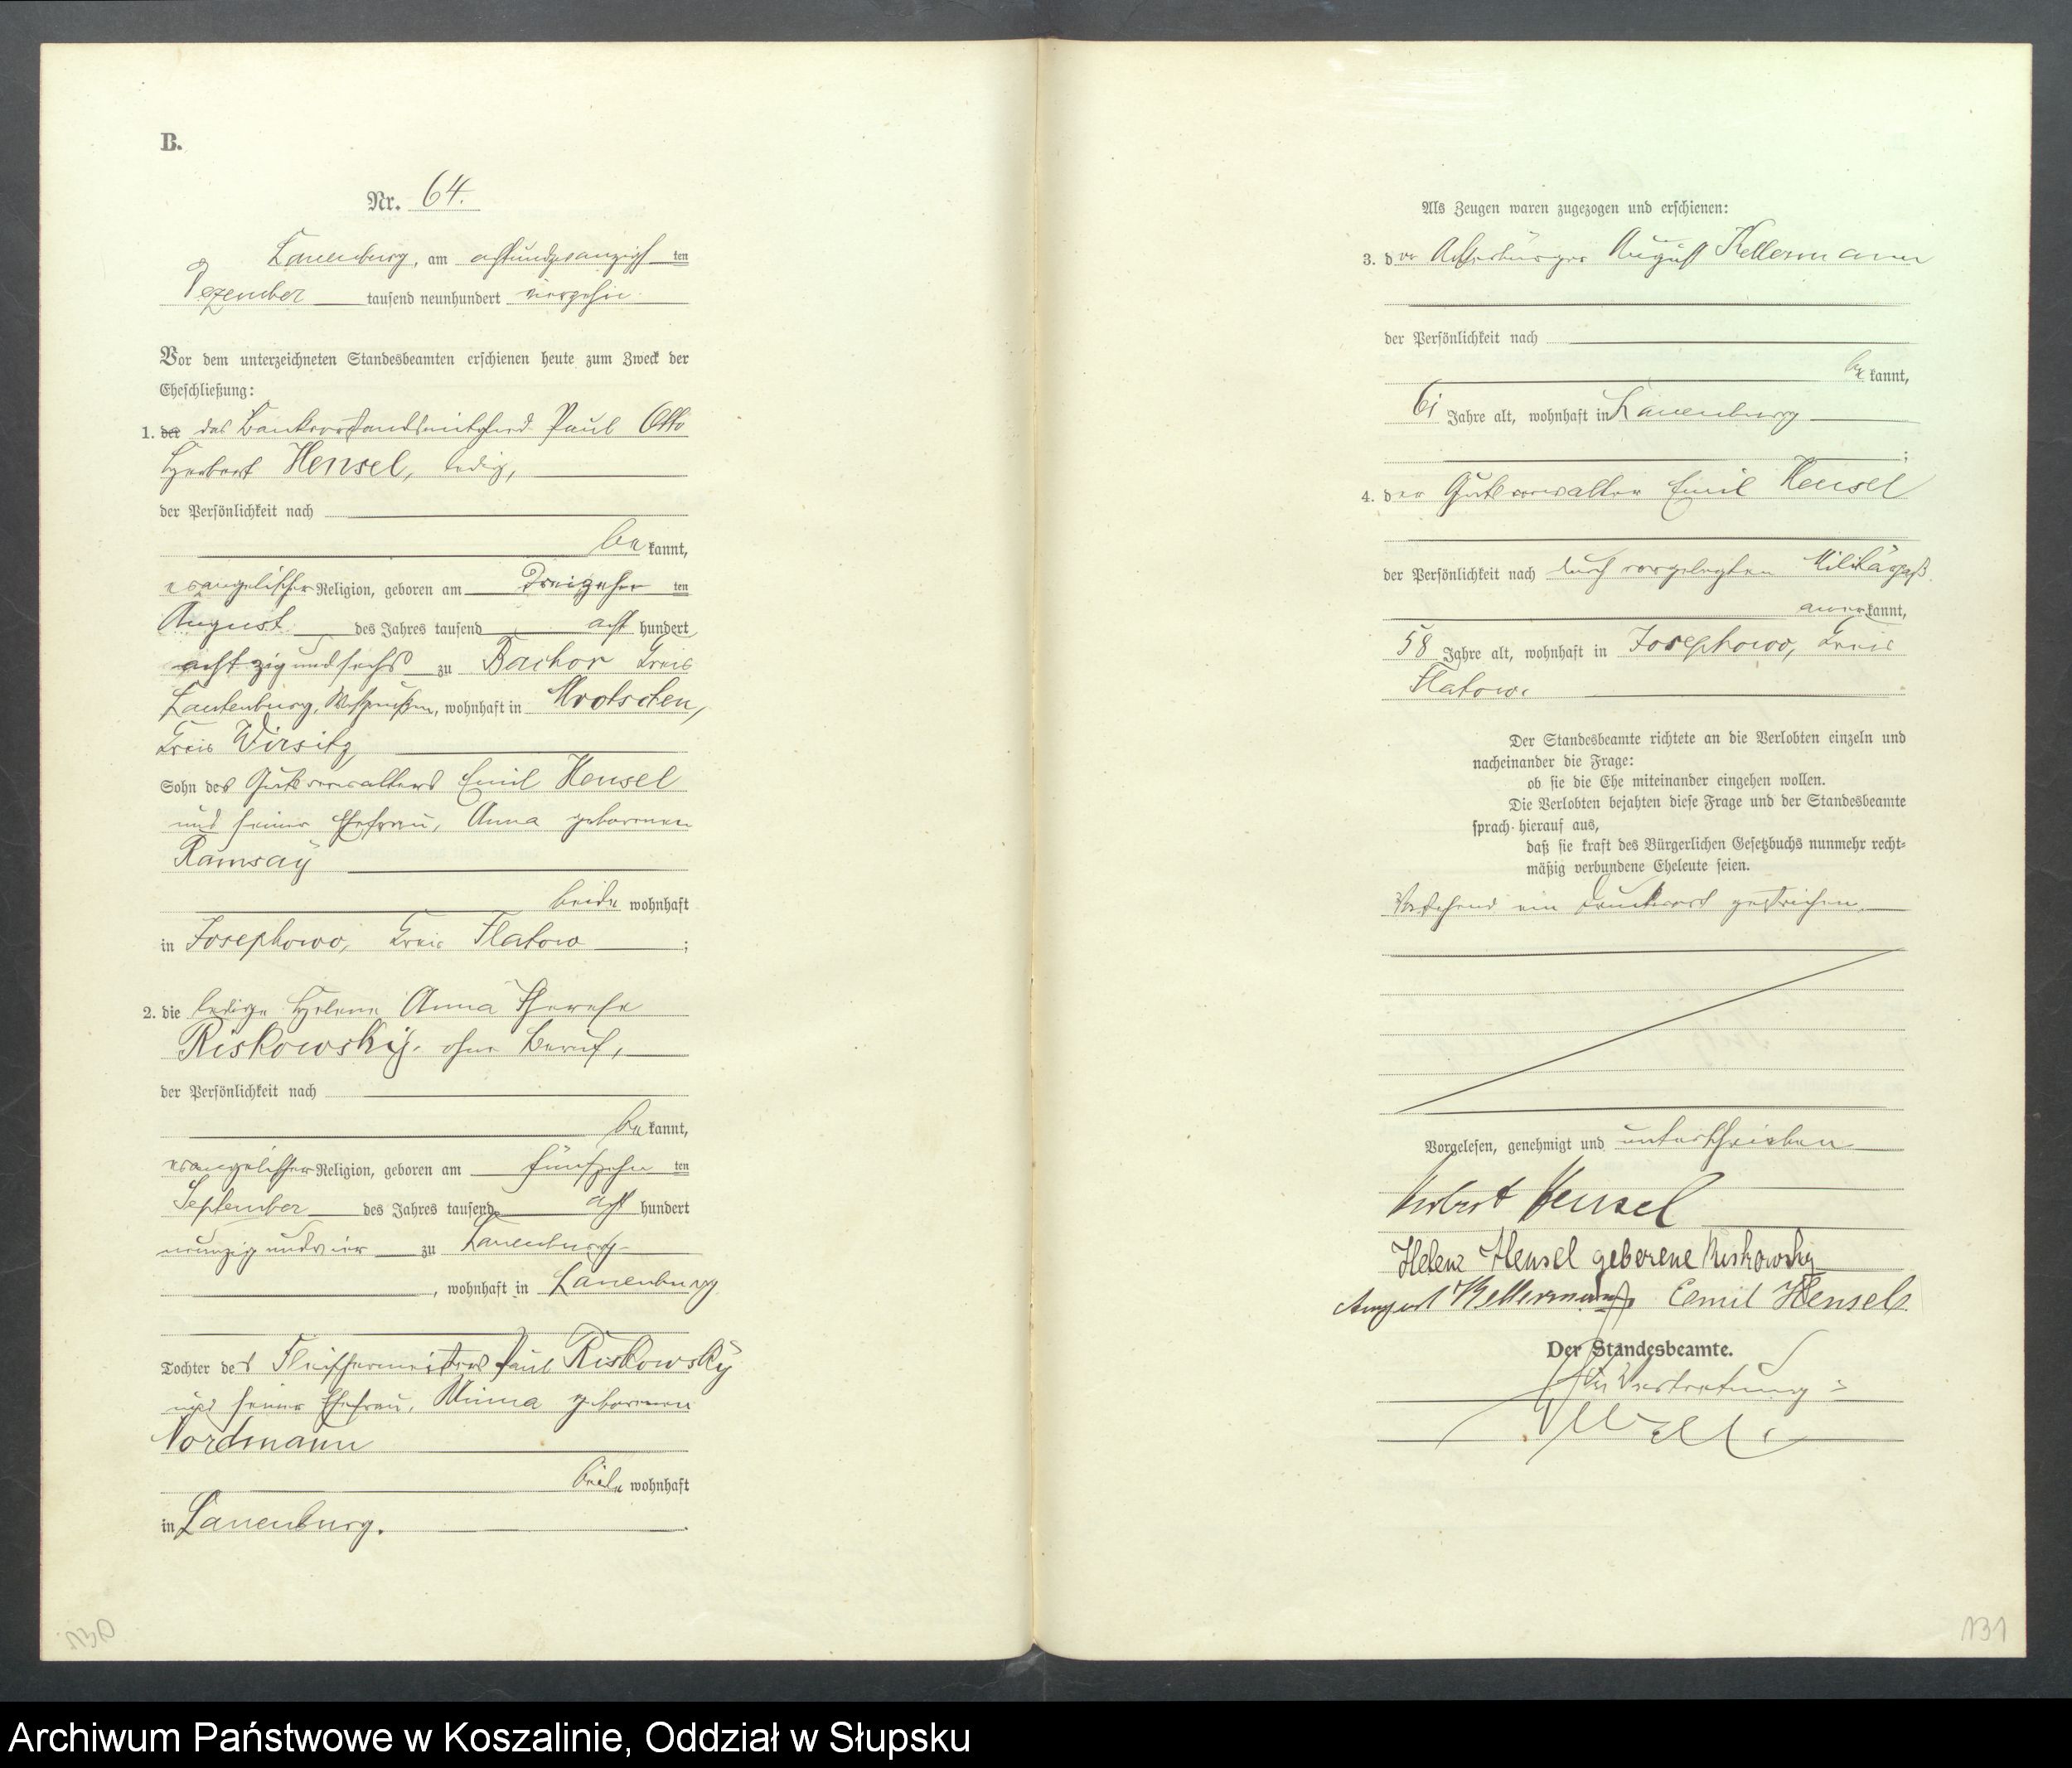 B.
Nr. 64.
Lauenburg, am achtundzwanzigsten
Dezember tausend neunhundert vierzehn.
Vor dem unterzeichneten Standesbeamten erschienen heute zum Zweck der
Eheschließung:
1. der das Bankvorstandsmitglied Paul Otto
Herbert Hensel, ledig,
der Persönlichkeit nach
bekannt,
evangelischer Religion, geboren am dreizehnten
August des Jahres tausend acht hundert
achtzig und sechs zu Bachor Kreis
Lautenburg, Westpreußen, wohnhaft in Mrotschen,
Kreis Wirsitz,
Sohn des Gutsverwalters Emil Hensel
und seiner Ehefrau, Anna geborenen
Ramsay
beide wohnhaft
in Josephowo, Kreis Flatow ;
2. die ledige Helene Anna Therese
Riskowsky, ohne Beruf,
der Persönlichkeit nach
bekannt,
evangelischer Religion, geboren am fünfzehnten
September des Jahres tausend acht hundert
neunzig und vier zu Lauenburg
, wohnhaft in Lauenburg
Tochter des Fleischermeisters Paul Riskowsky
und seiner Ehefrau, Minna geborenen
Nordmann
beide wohnhaft
in Lauenburg.
130
Als Zeugen waren zugezogen und erschienen:
3. der Ackerbürger August Kellermann
der Persönlichkeit nach
bekannt,
61 Jahre alt, wohnhaft in Lauenburg
;
4. der Gutsverwalter Emil Hensel
der Persönlichkeit nach durch vorgelegten Militärpaß
anerkannt,
58 Jahre alt, wohnhaft in Josephowo, Kreis
Flatow.
Der Standesbeamte richtete an die Verlobten einzeln und
nacheinander die Frage:
ob sie die Ehe miteinander eingehen wollen.
Die Verlobten bejahten diese Frage und der Standesbeamte
sprach hierauf aus,
daß sie kraft des Bürgerlichen Gesetzbuchs nunmehr recht-
mäßig verbundene Eheleute seien.
Vorstehend ein Druckwort gestrichen.
Vorgelesen, genehmigt und unterschrieben
Herbert Hensel
Helene Hensel geborene Riskowsky
August Kellermann Emil Hensel
Der Standesbeamte.
In Vertretung:
131
Archiwum Państwowe w Koszalinie, Oddział w Słupsku